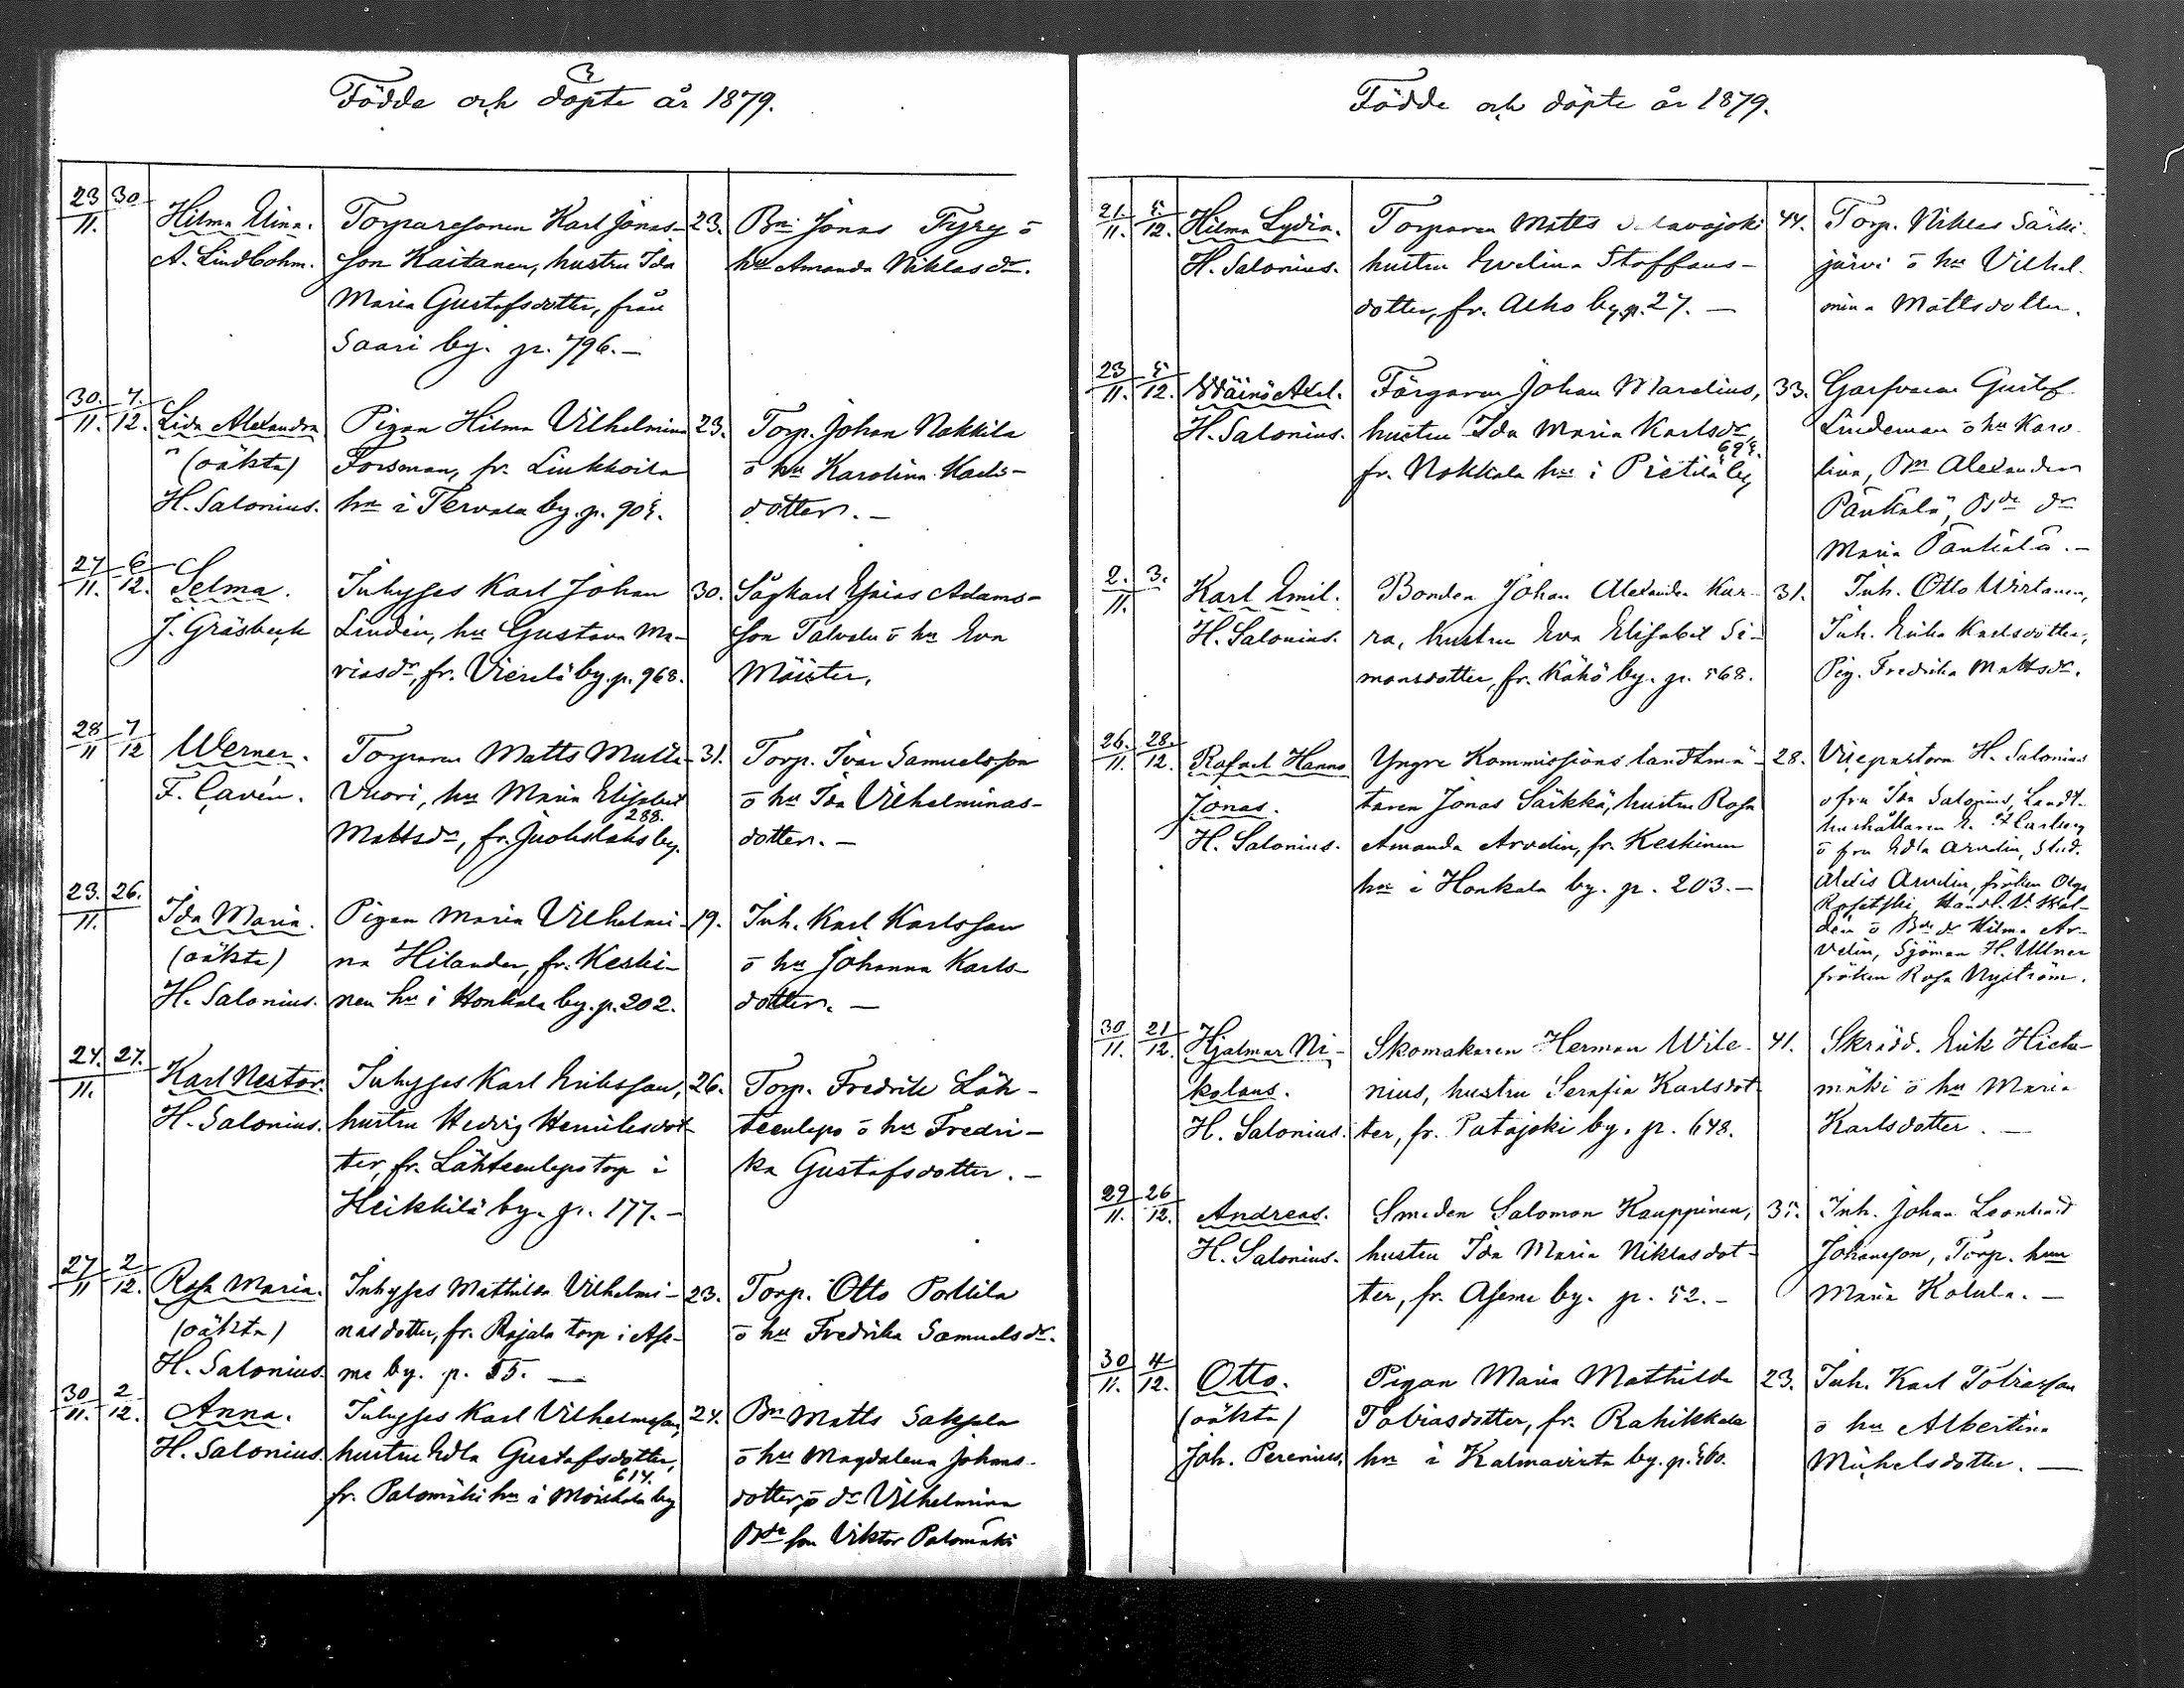 Födde och döpte år 1879.
23 30
11.
Hilma Elina.
A. Lindbohm.
Torparesonen Karl Jonas-
son Kaitanen, hustru Ida
Maria Gustafsdotter, från
Saari by. p. 796.—
23.
Bn Jonas Tyry o
hu Amanda Niklasdr.
30. 7.
11. 12.
Lida Alexandra
(oäkta)
H. Salonius.
Pigan Hilma Vilhelmina
Forsman, fr. Liukkoila
hn i Tervala by. p. 905.
23.
Torp. Johan Nokkila
o hu Karolina Karls-
dotter.—
27 6
11. 12.
Selma.
J. Gräsbeck
Inhyses Karl Johan
Lindén, hu Gustava Ma-
riasdr, fr. Vierelä by. p. 968.
30.
Sågkarl Esaias Adams-
son Talvela o hu Eva
Mäister.
28 7
11 12
Werner.
F. Cavén.
Torparen Matts Multi-
vuori, hu Maria Elisabet
288.
Mattsdr, fr. Juokslahs by.
31.
Torp. Ivar Samuelsson
o hu Ida Vilhelminas-
dotter.—
23. 26.
11.
Ida Maria.
(oäkta)
H. Salonius.
Pigan Maria Vilhelmi-
na Hilander, fr. Keski-
nen hn i Honkala by. p. 202.
19.
Inh. Karl Karlsson
o hu Johanna Karls-
dotter.—
24. 27.
11.
Karl Nestor.
H. Salonius.
Inhyses Karl Eriksson,
hustru Hedvig Henriksdot-
ter, fr. Lähteenlepo torp i
Heikkilä by. p. 177.—
26.
Torp. Fredrik Läh-
teenlepo o hu Fredri-
ka Gustafsdotter.—
27 2
11 12.
Rosa Maria.
(oäkta)
H. Salonius.
Inhyses Mathilda Vilhelmi-
nasdotter, fr. Rajala torp i Ase-
me by. p. 55.—
23.
Torp. Otto Porkkila
o hu Fredrika Samuelsdr.
30 2
11. 12.
Anna.
H. Salonius.
Inhyses Karl Vilhelmsson,
hustru Edla Gustafsdotter,
614.
fr. Palomäki hn i Moiskala by
24.
Bn Matts Sakjala
o hu Magdalena Johans-
dotter, o dr Vilhelmina
Bde son Viktor Palomäki
Födde och döpte år 1879.
21. 5.
11. 12.
Hilma Lydia.
H. Salonius.
Torparen Matts
hustru Evelina Staffans-
dotter, fr. Alho by. p. 27.—
44.
Torp. Niklas Särki-
järvi o hu Vilhel-
mina Mattsdotter.
23 5
11. 12.
Wäinö Axel.
H. Salonius.
Färgaren Johan Marelius,
hustru Ida Maria Karlsdr,
695.
fr. Nokkala hn i Pietilä by
33.
Garfvaren Gustaf
Lindeman o hu Karo-
lina, Bn Alexander
Pänkälä, Bde dr
Maria Pänkälä.—
2. 3.
11.
Karl Emil.
H. Salonius.
Bonden Johan Alexander Kur-
ra, hustru Eva Elisabet Si-
monsdotter, fr. Kähö by. p. 568.
31.
Inh. Otto Wirtanen,
Inh. Erika Karlsdotter,
Pig. Fredrika Mattsdr.
26. 28.
11. 12.
Rafael Hanno
Jonas.
H. Salonius.
Yngre Kommissions landtmä-
taren Jonas Särkkä, hustru Rosa
Amanda Arvelin, fr. Keskinen
hn i Honkala by. p. 203.—
28.
Vicepastorn H. Salonius
o fru Ida Salonius, Landt-
hushållaren E. Hartberg
o fru Edla Arvelin, Stud.
Alexis Arvelin, fröken Olga
Handl. V. Wal-
dén o Bde dr Hilma Ar-
velin, Sjöman H. Ullner
fröken Rosa Nyström.
30 21
11. 12.
Hjalmar Ni-
kolaus.
H. Salonius.
Skomakaren Herman Wile-
nius, hustru Serafia Karlsdot-
ter, fr. Patajoki by. p. 648.
41.
Skrädd. Erik Hieta-
mäki o hu Maria
Karlsdotter.—
29 26
11. 12.
Andreas.
H. Salonius.
Smeden Salomon Kauppinen,
hustru Ida Maria Niklasdot-
ter, fr. Aseme by. p. 52.—
35.
Inh. Johan Leonhard
Johansson, Torp. hun
Maria Kolula.—
30 4
11. 12.
Otto.
(oäkta)
Joh. Perenius.
Pigan Maria Mathilda
Tobiasdotter, fr. Rahikkala
hn i Kalmavirta by. p. 560.
23.
Inh. Karl Tobiasson
o hu Albertina
Mickelsdotter.—